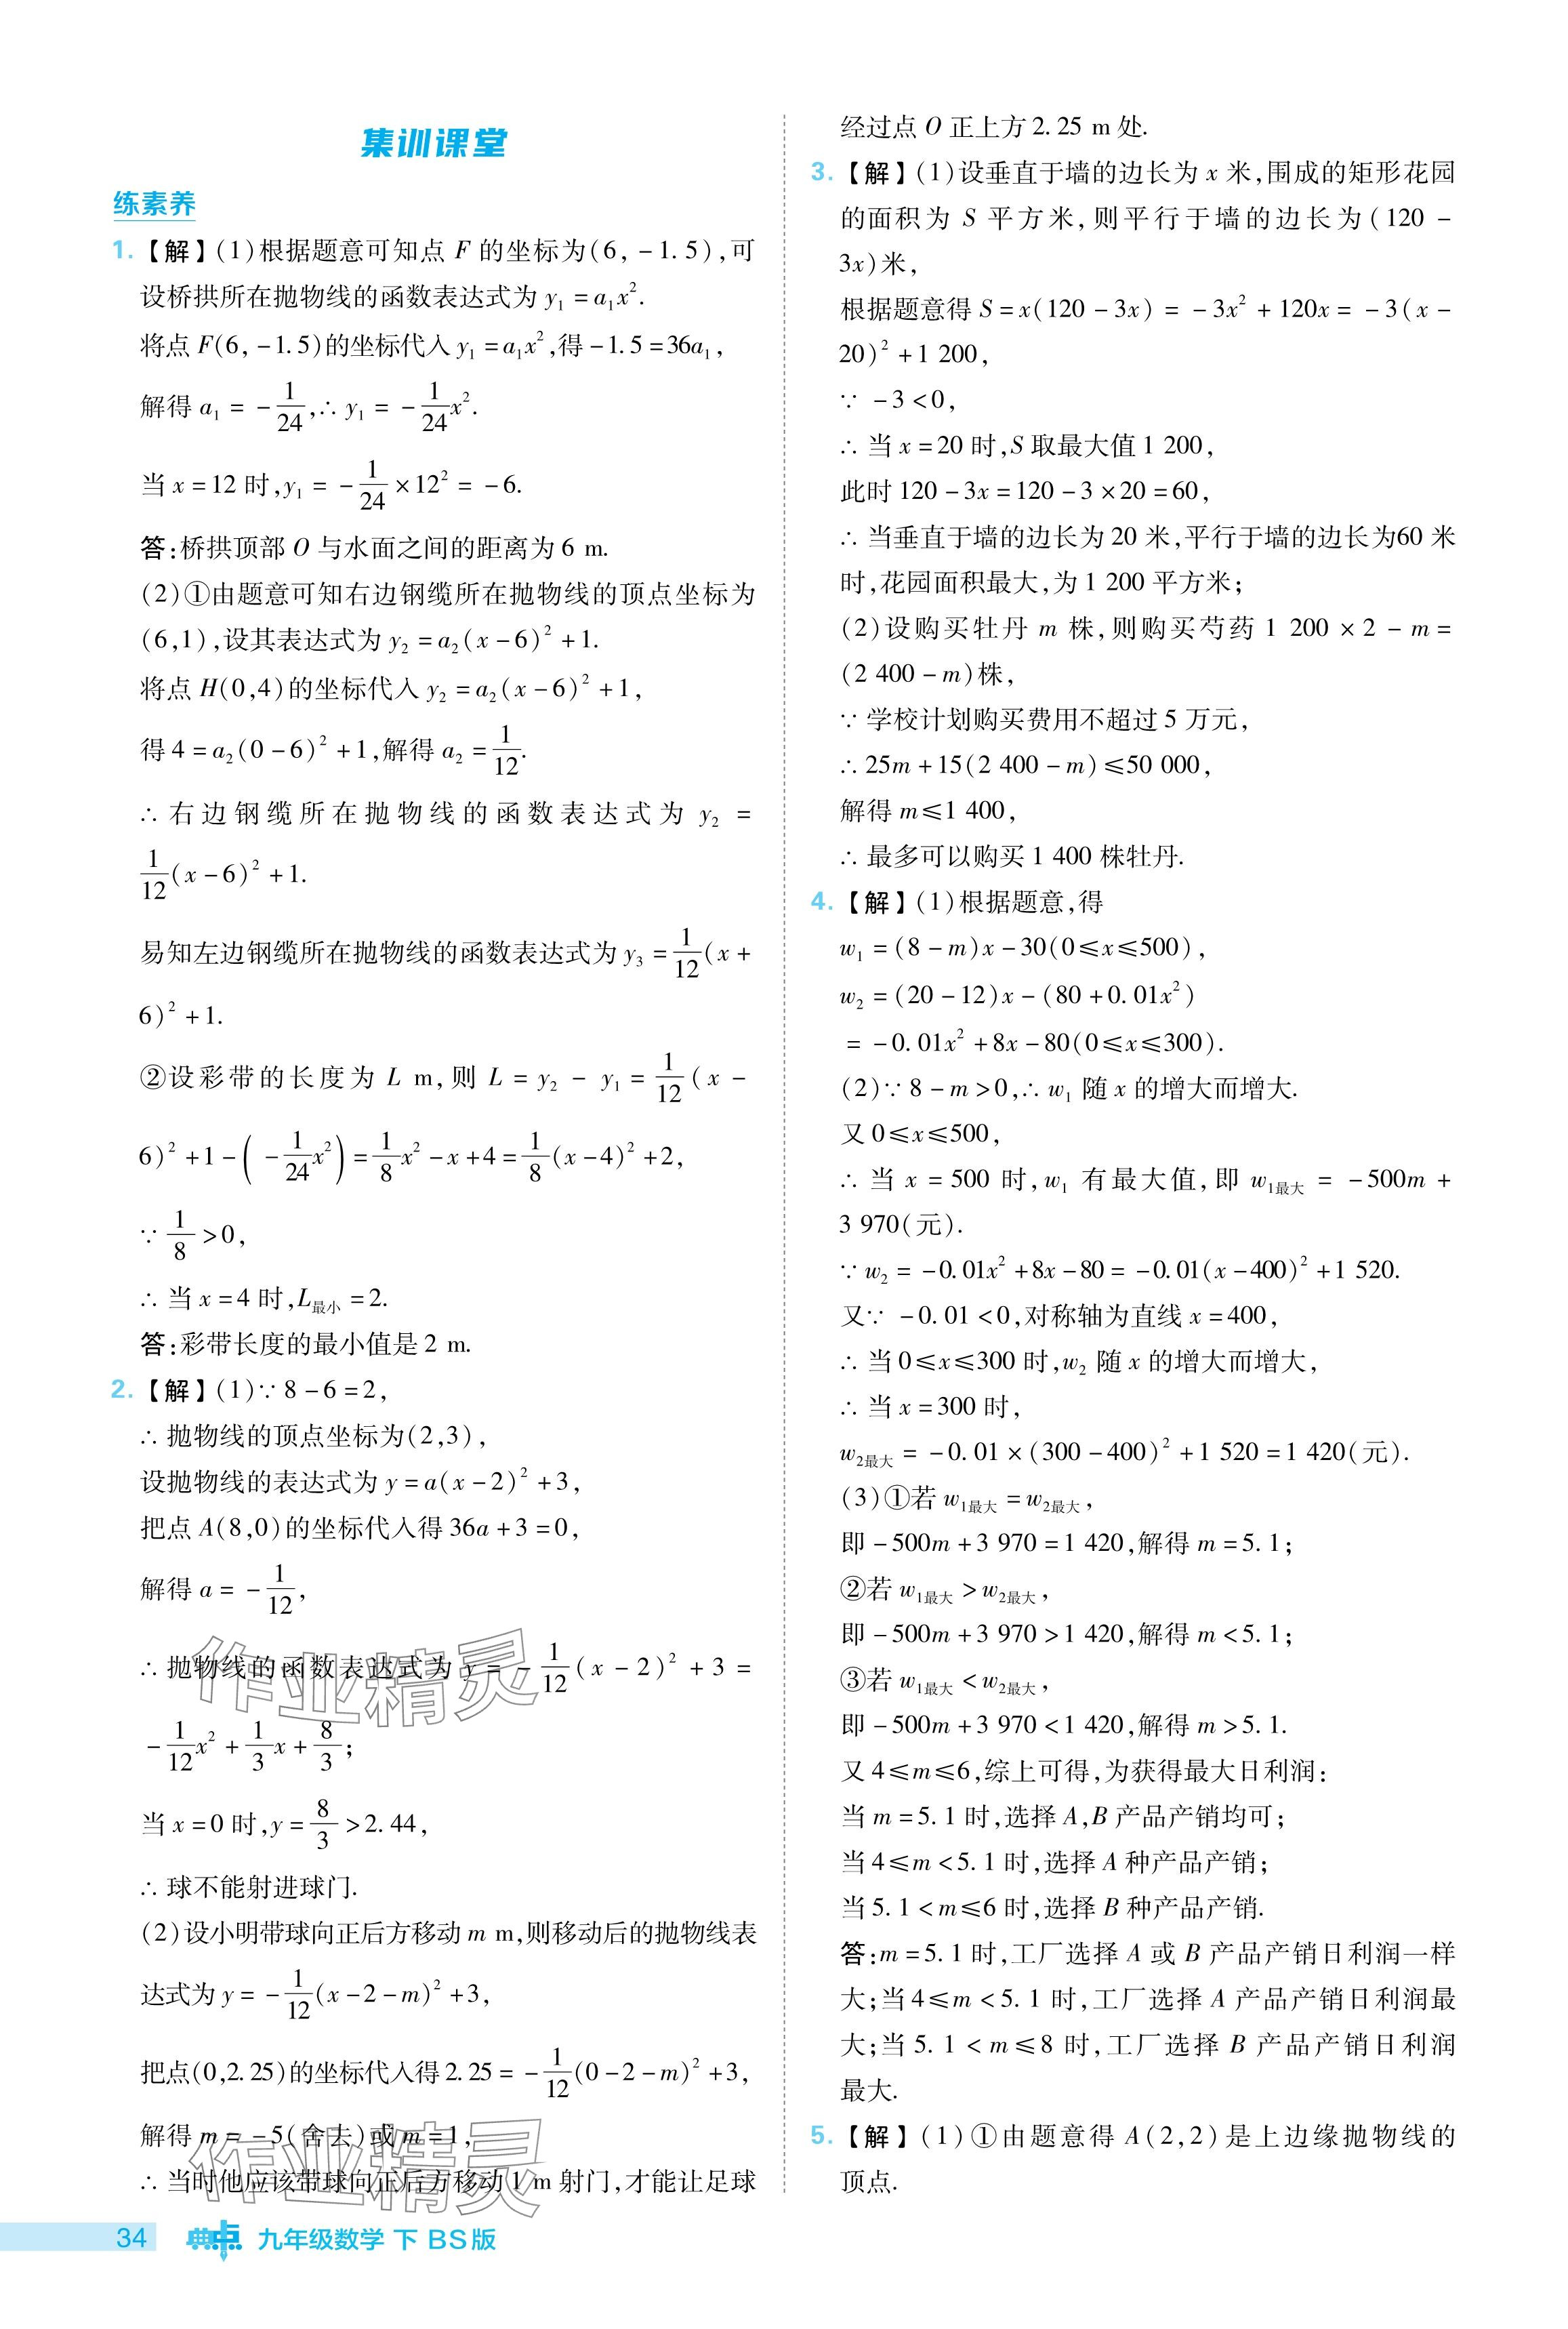 集训课堂
练素养
1.【解】(1)根据题意可知点 F 的坐标为(6, -1.5),可
设桥拱所在抛物线的函数表达式为 y₁ = a₁x².
将点 F(6, -1.5)的坐标代入 y₁ = a₁x²,得 -1.5 = 36a₁,
解得 a₁ = -1/24,∴ y₁ = -1/24x².
当 x = 12 时,y₁ = -1/24 × 12² = -6.
答:桥拱顶部 O 与水面之间的距离为 6 m.
(2)①由题意可知右边钢缆所在抛物线的顶点坐标为
(6,1),设其表达式为 y₂ = a₂(x-6)² + 1.
将点 H(0,4)的坐标代入 y₂ = a₂(x-6)² + 1,
得 4 = a₂(0-6)² + 1,解得 a₂ = 1/12.
∴ 右边钢缆所在抛物线的函数表达式为 y₂ =
1/12(x-6)² + 1.
易知左边钢缆所在抛物线的函数表达式为 y₃ = 1/12(x+
6)² + 1.
②设彩带的长度为 L m,则 L = y₂ - y₁ = 1/12(x-
6)² + 1 - (-1/24x²) = 1/8x² - x + 4 = 1/8(x-4)² + 2,
∵ 1/8 > 0,
∴ 当 x = 4 时,L最小 = 2.
答:彩带长度的最小值是 2 m.
2.【解】(1)∵ 8 - 6 = 2,
∴ 抛物线的顶点坐标为(2,3),
设抛物线的表达式为 y = a(x-2)² + 3,
把点 A(8,0)的坐标代入得 36a + 3 = 0,
解得 a = -1/12,
∴ 抛物线的函数表达式为 y = -1/12(x-2)² + 3 =
-1/12x² + 1/3x + 8/3;
当 x = 0 时,y = 8/3 > 2.44,
∴ 球不能射进球门.
(2)设小明带球向正后方移动 m m,则移动后的抛物线表
达式为 y = -1/12(x-2-m)² + 3,
把点(0,2.25)的坐标代入得 2.25 = -1/12(0-2-m)² + 3,
解得 m = -5(舍去)或 m = 1,
∴ 当时他应该带球向正后方移动 1 m 射门,才能让足球
经过点 O 正上方 2.25 m 处.
3.【解】(1)设垂直于墙的边长为 x 米,围成的矩形花园
的面积为 S 平方米,则平行于墙的边长为(120 -
3x)米,
根据题意得 S = x(120-3x) = -3x² + 120x = -3(x-
20)² + 1 200,
∵ -3 < 0,
∴ 当 x = 20 时,S 取最大值 1 200,
此时 120 - 3x = 120 - 3×20 = 60,
∴ 当垂直于墙的边长为 20 米,平行于墙的边长为60 米
时,花园面积最大,为 1 200 平方米;
(2)设购买牡丹 m 株,则购买芍药 1 200 × 2 - m =
(2 400 - m)株,
∵ 学校计划购买费用不超过 5 万元,
∴ 25m + 15(2 400 - m) ≤ 50 000,
解得 m ≤ 1 400,
∴ 最多可以购买 1 400 株牡丹.
4.【解】(1)根据题意,得
w₁ = (8-m)x - 30(0≤x≤500),
w₂ = (20-12)x - (80 + 0.01x²)
= -0.01x² + 8x - 80(0≤x≤300).
(2)∵ 8 - m > 0,∴ w₁ 随 x 的增大而增大.
又 0≤x≤500,
∴ 当 x = 500 时,w₁ 有最大值,即 w₁最大 = -500m +
3 970(元).
∵ w₂ = -0.01x² + 8x - 80 = -0.01(x-400)² + 1 520.
又∵ -0.01 < 0,对称轴为直线 x = 400,
∴ 当 0≤x≤300 时,w₂ 随 x 的增大而增大,
∴ 当 x = 300 时,
w₂最大 = -0.01 × (300-400)² + 1 520 = 1 420(元).
(3)①若 w₁最大 = w₂最大,
即 -500m + 3 970 = 1 420,解得 m = 5.1;
②若 w₁最大 > w₂最大,
即 -500m + 3 970 > 1 420,解得 m < 5.1;
③若 w₁最大 < w₂最大,
即 -500m + 3 970 < 1 420,解得 m > 5.1.
又 4≤m≤6,综上可得,为获得最大日利润:
当 m = 5.1 时,选择 A,B 产品产销均可;
当 4≤m<5.1 时,选择 A 种产品产销;
当 5.1<m≤6 时,选择 B 种产品产销.
答:m = 5.1 时,工厂选择 A 或 B 产品产销日利润一样
大;当 4≤m<5.1 时,工厂选择 A 产品产销日利润最
大;当 5.1<m≤8 时,工厂选择 B 产品产销日利润
最大.
5.【解】(1)①由题意得 A(2,2)是上边缘抛物线的
顶点.
作业精灵
作业精灵
34 典中点 九年级数学 下 BS版